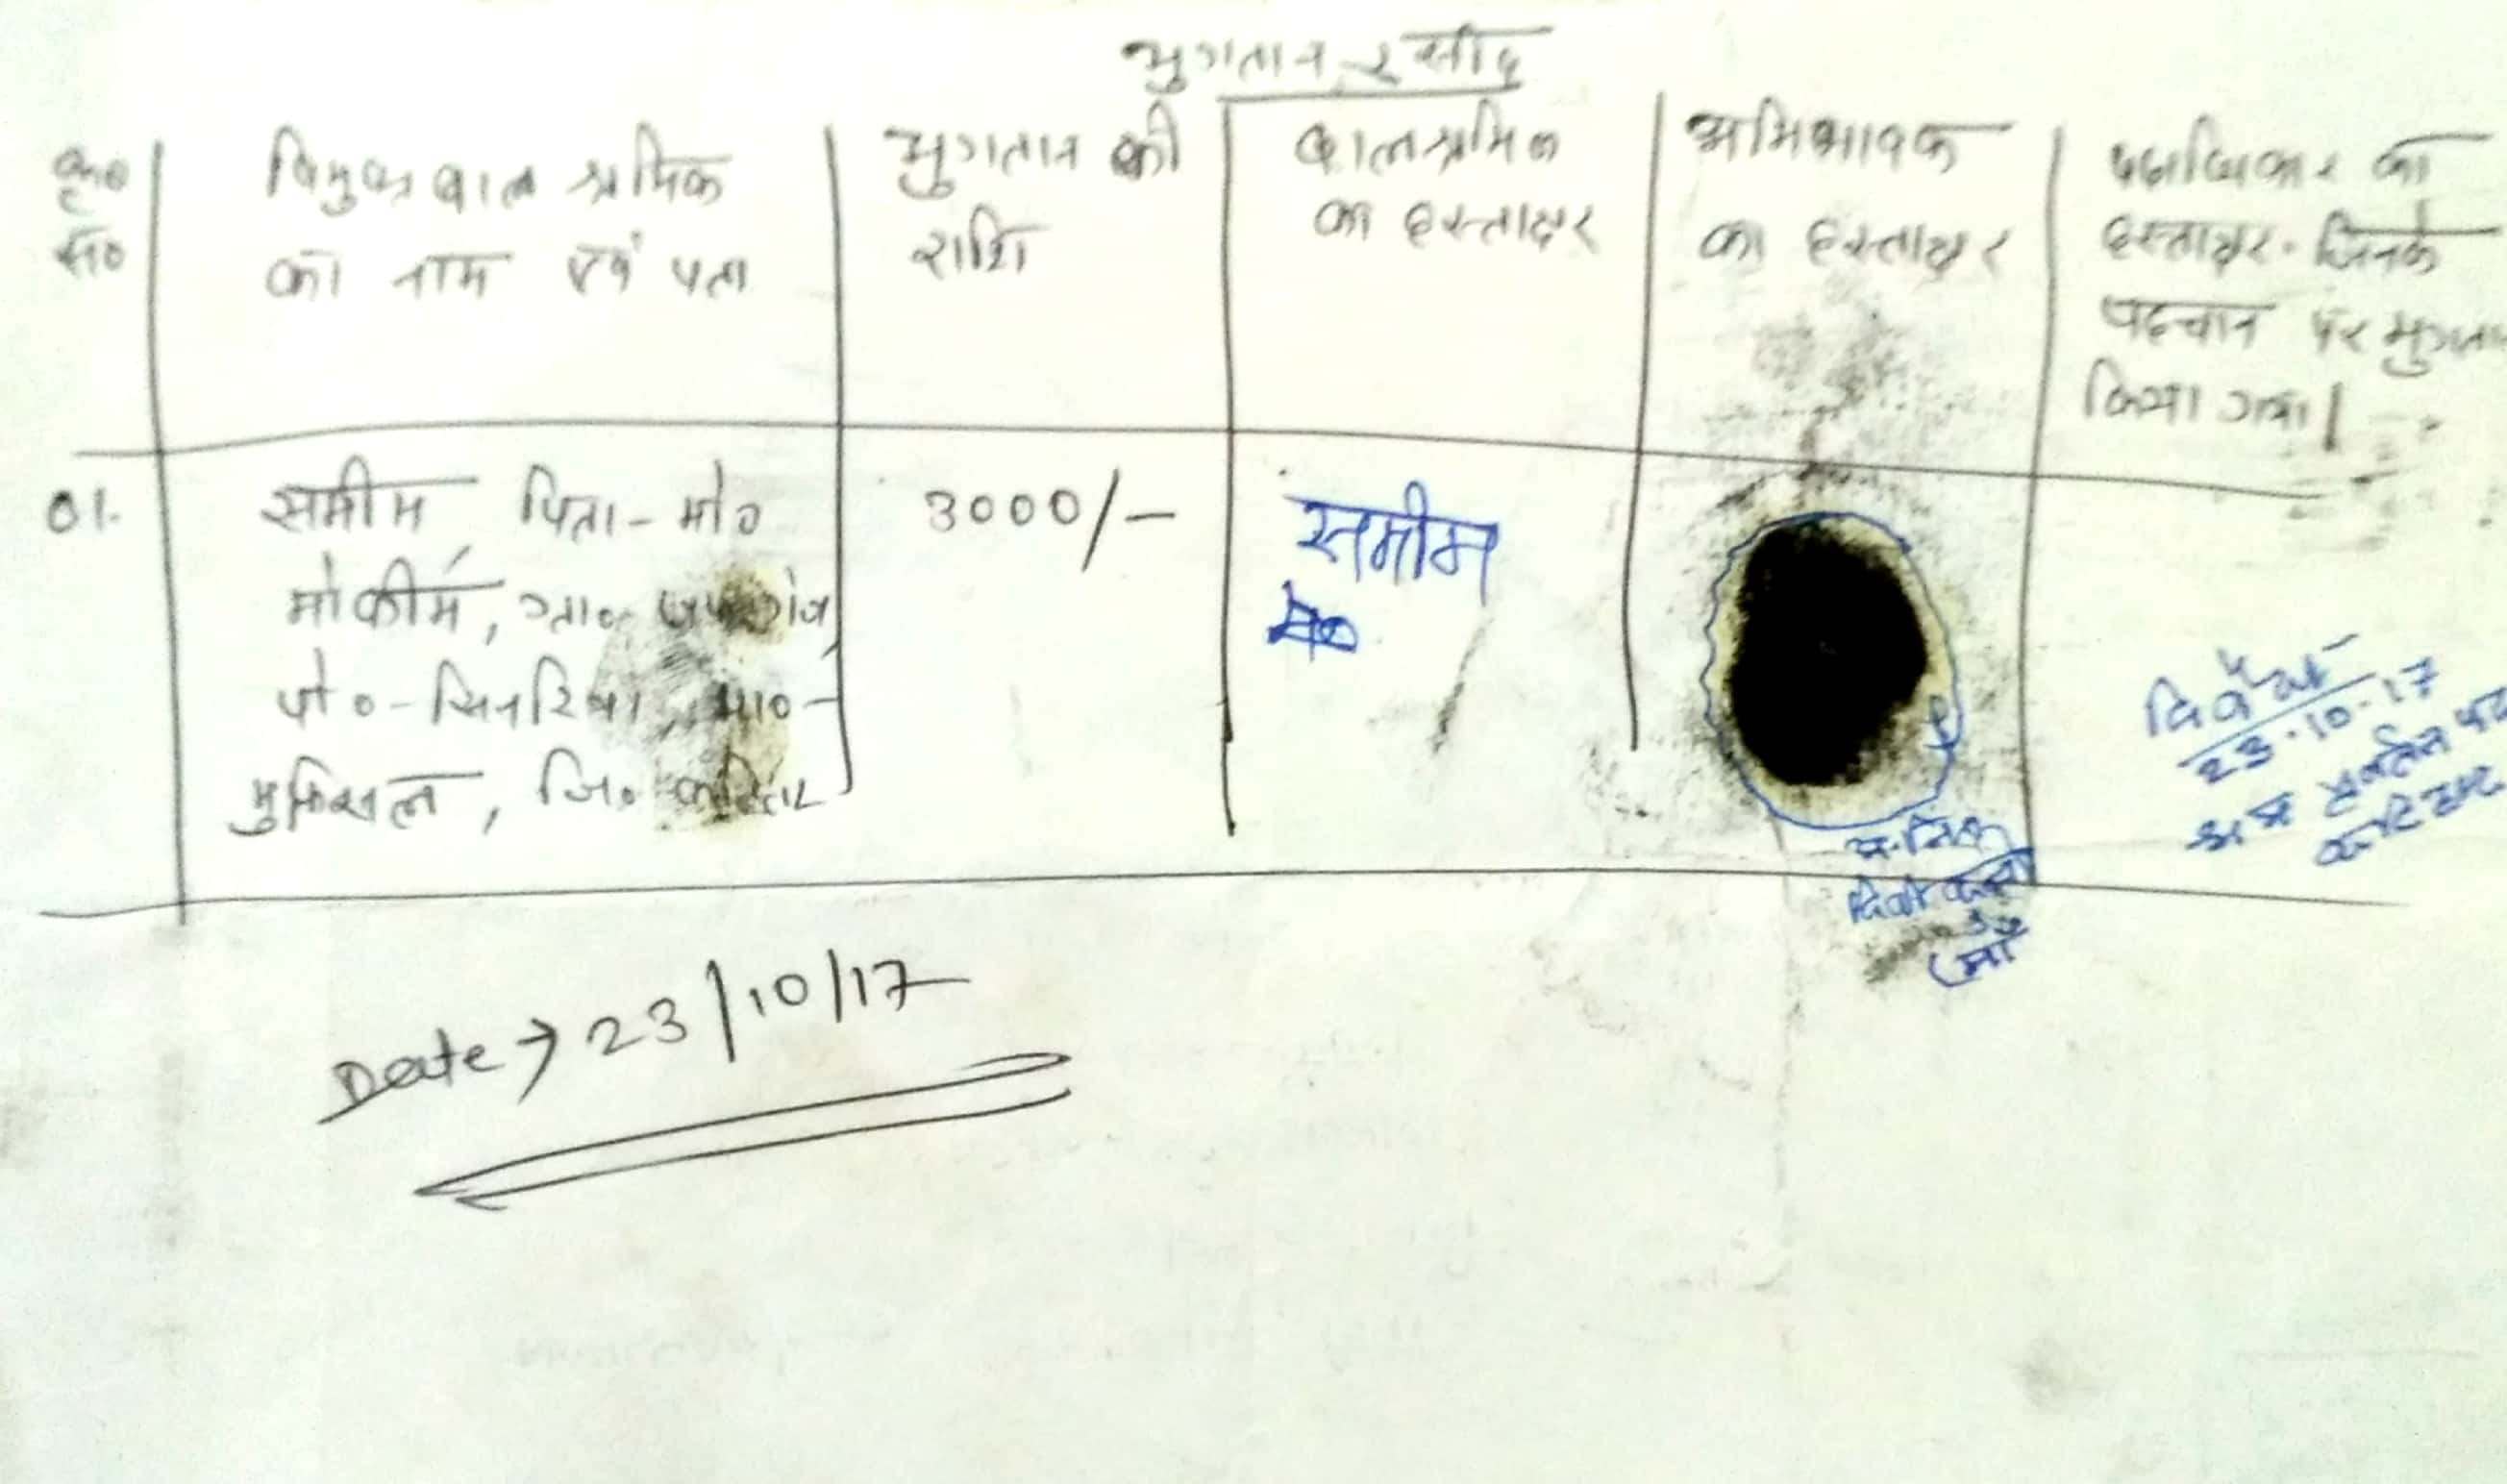 भुगतान रसीद
क्र०
सं०
विमुक्त बाल श्रमिक
का नाम एवं पता
भुगतान की
राशि
बालश्रमिक
का हस्ताक्षर
अभिभावक
का हस्ताक्षर
पदाधिकार का
हस्ताक्षर जिनके
पहचान पर भुगता
किया गया।
01.
समीम, पिता- मो०
मोकीम, ग्रा०-
पो०- था०-
मुफ्फिसल, जि० कटिहार
3000/-
समीम
(माँ
23.10.17
श्रम प्रवर्तन पदा
कटिहार
Date → 23/10/17